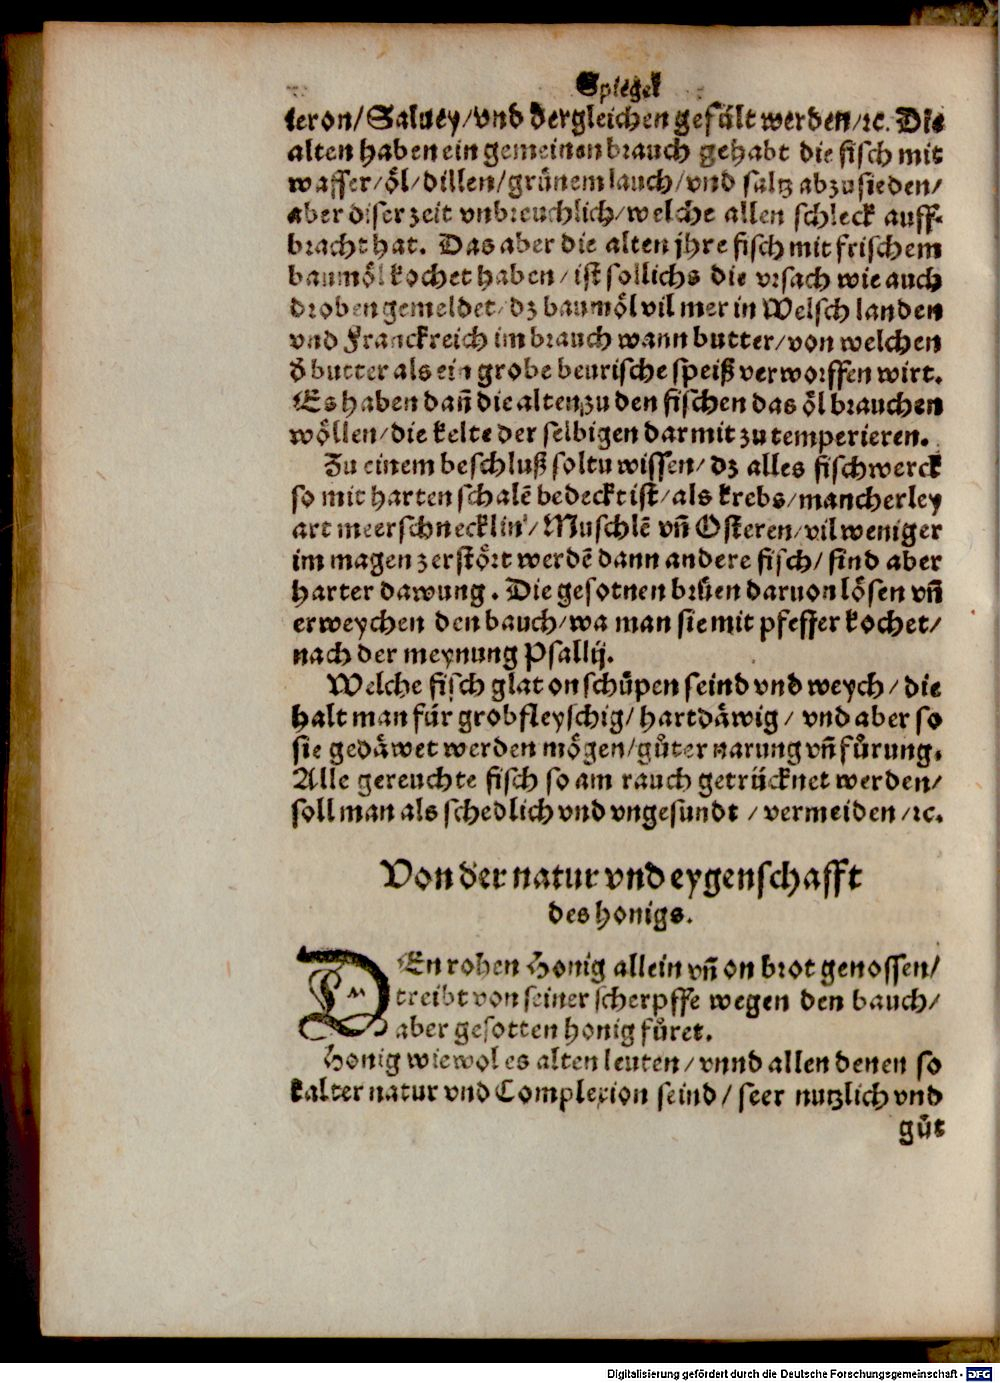 Spiegel
teron/ Saluey/ vnd dergleichen gefült werden/ ꝛc. Die
alten haben ein gemeinen brauch gehabt die fisch mit
wasser/ öl/ dillen/ grůnem lauch/ vnd saltz abzusieden/
aber diser zeit vnbreuchlich/ welche allen schleck auff-
bracht hat. Das aber die alten jhre fisch mit frischem
baumöl kochet haben/ ist sollichs die vrsach wie auch
droben gemeldet/ dz baumöl vil mer in Welsch landen
vnd Franckreich im brauch wann butter/ von welchen
d̕ butter als ein grobe beurische speiß verworffen wirt.
Es haben dañ die alten zu den fischen das öl brauchen
wöllen/ die kelte der selbigen darmit zu temperieren.
Zu einem beschluß soltu wissen/ dz alles fischwerck
so mit harten schalē bedeckt ist/ als krebs/ mancherley
art meerschnecklin/ Muschlē vñ Osteren/ vil weniger
im magen zerstört werdē dann andere fisch/ sind aber
harter dawung. Die gesotnen brůen daruon lösen vñ
erweychen den bauch/ wa man sie mit pfeffer kochet/
nach der meynung Psallij.
Welche fisch glat on schůpen seind vnd weych/ die
halt man für grobfleyschig/ hartdäwig/ vnd aber so
sie gedäwet werden mögen/ gůter narung vñ fůrung.
Alle gereuchte fisch so am rauch getrücknet werden/
soll man als schedlich vnd vngesundt/ vermeiden/ ꝛc.
Von der natur vnd eygenschafft
des honigs.
DEn rohen Honig allein vñ on brot genossen/
treibt von seiner scherpffe wegen den bauch/
aber gesotten honig fůret.
Honig wiewol es alten leuten/ vnnd allen denen so
kalter natur vnd Complexion seind/ seer nutzlich vnd
gůt
Digitalisierung gefördert durch die Deutsche Forschungsgemeinschaft - DFG